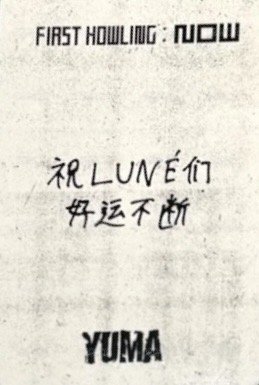 FIRST HOWLING : NOW
祝LUNÉ们
好运不断
YUMA